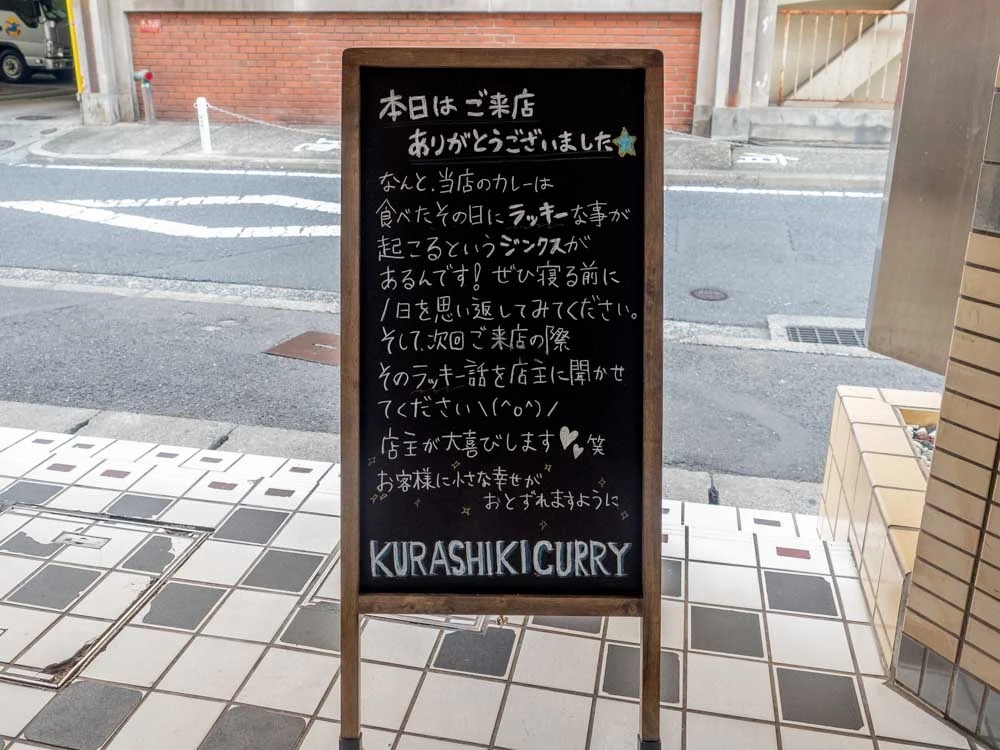 本日は ご来店
ありがとうございました
なんと、当店のカレーは
食べたその日にラッキーな事が
起こるというジンクスが
あるんです! ぜひ寝る前に
1日を思い返してみてください。
そして、次回ご来店の際
そのラッキー話を店主に聞かせ
てください\(^o^)/
店主が大喜びします 笑
お客様に小さな幸せが
おとずれますように
KURASHIKI CURRY